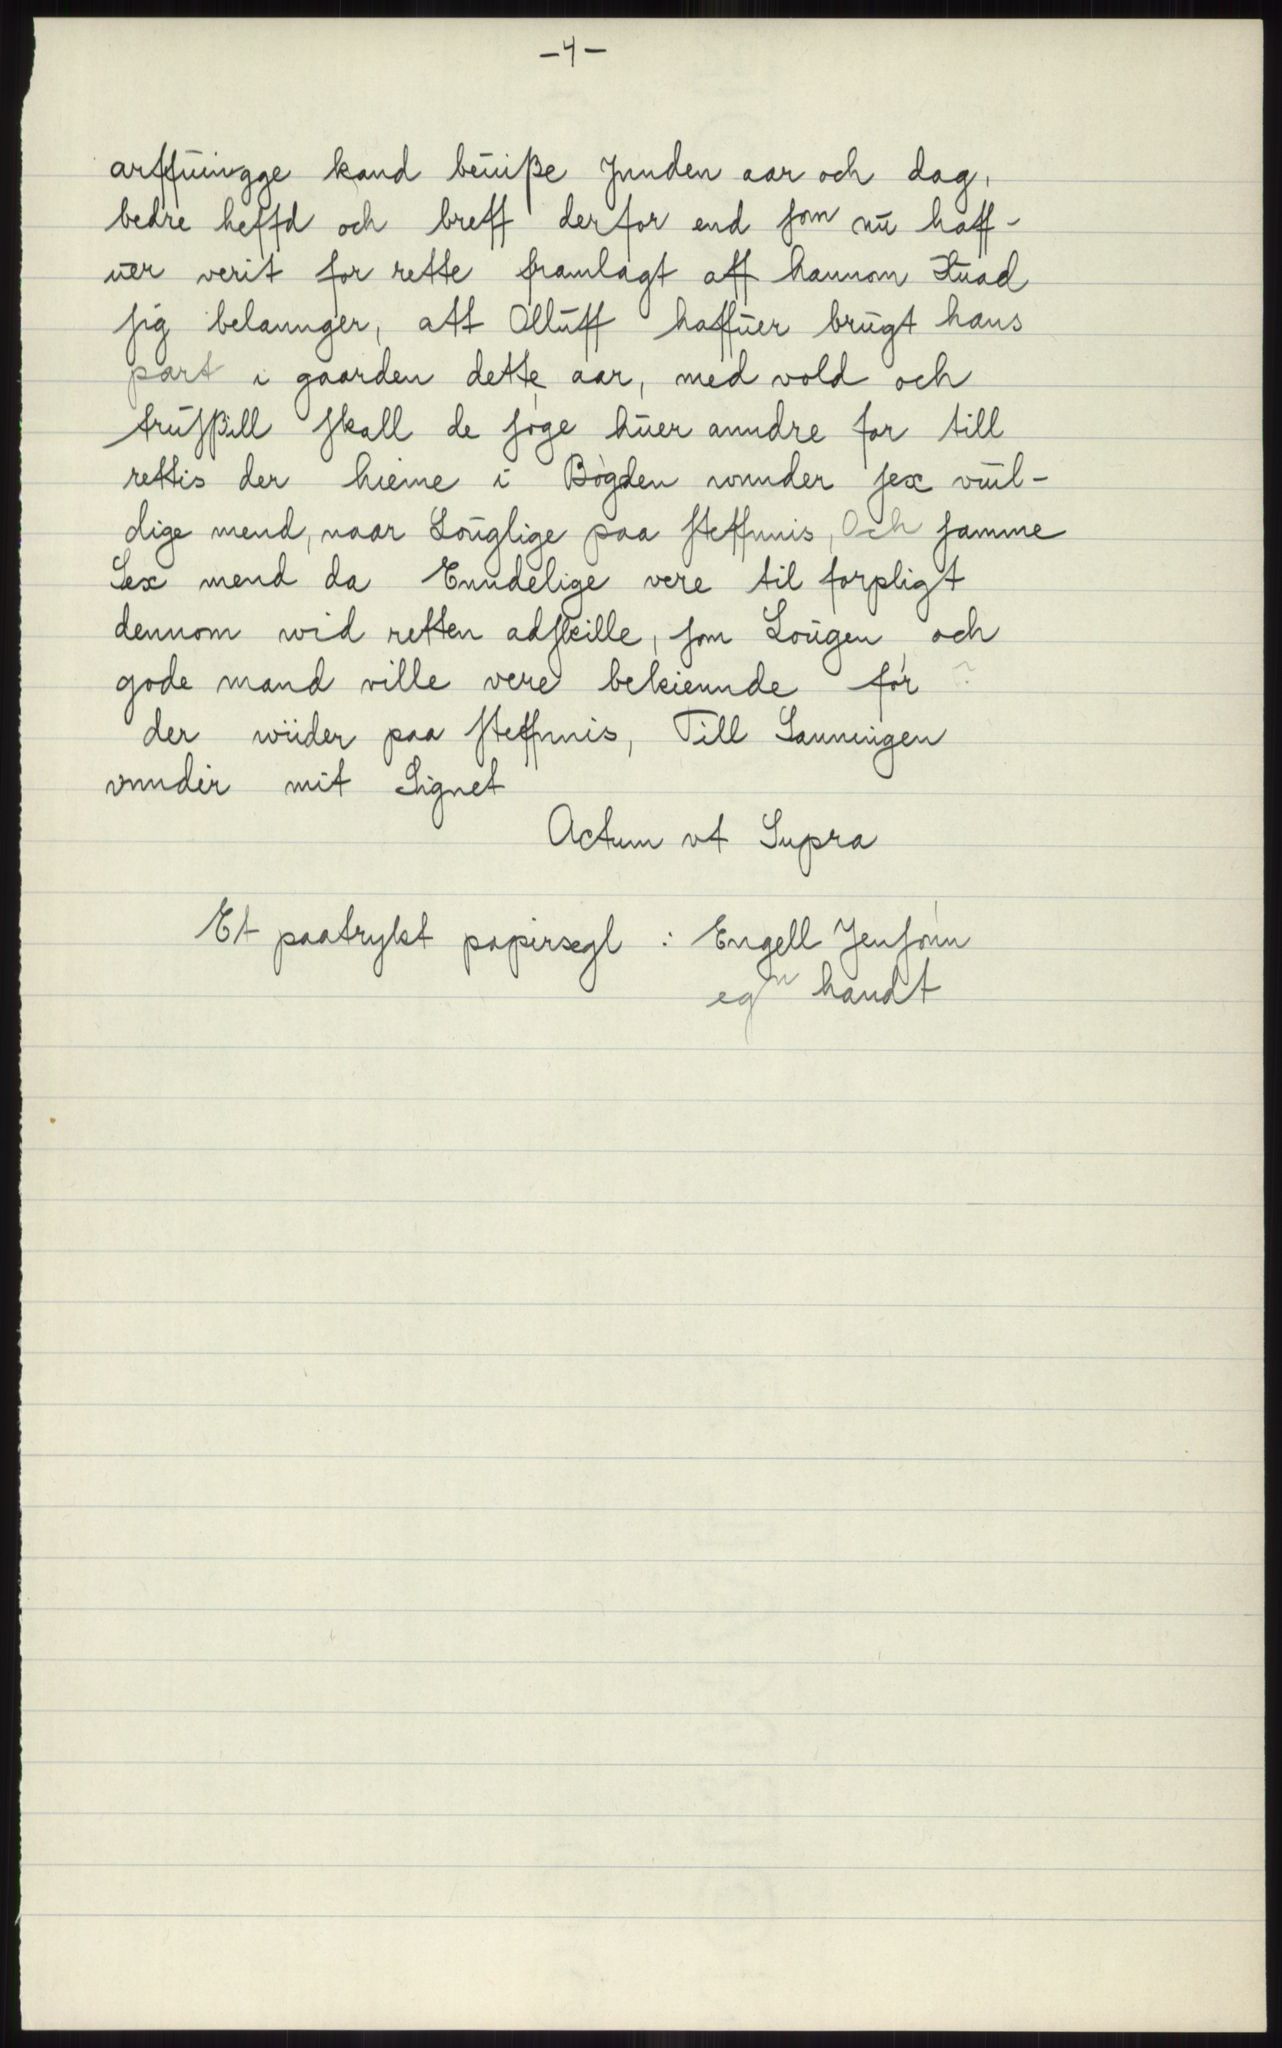 -4-
arffuingge kand beuiße Jnnden aar och dag,
bedre heffd och breff derfor end som nu haff-
uer verit for rette framlagt aff hannom Huad
sig belannger, att Olluff haffuer brugt hans
part i gaarden dette aar, med vold och
trusßill skall de søge huer anndre for till
rettis der hieme i Bøgden vnnder sex vuil-
dige mend, naar Louglige paa steffnnis, Och samme
Sex mend da Enndelige vere til forpligt
dennom wid retten adskille, som Lougen och
gode mand ville vere bekiennde for ?
der wiider paa steffnnis, Till Sanningen
vnndir mit Signet
Actum vt Supra
Et paatrykt papirsegl : Engell Jensønn
egn handt